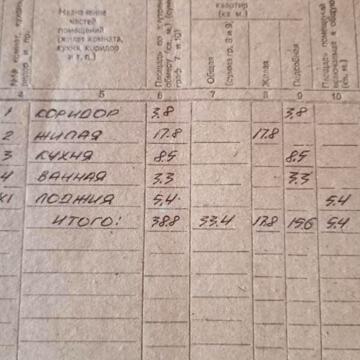 Назначение
частей
помещений
(жилая комната,
кухня, коридор
и т. п.)
квартир
(кв. м.)
Общая
(сумма гр. 8 и 9)
Жилая
Подсобная
4 5 6 7 8 9 10
1 КОРИДОР 3,8 3,8
2 ЖИЛАЯ 17.8 17.8
3 КУХНЯ 8.5 8.5
4 ВАННАЯ 3.3 3.3
XI ЛОДЖИЯ 5.4 5.4
ИТОГО: 38.8 33.4 17.8 15.6 5.4